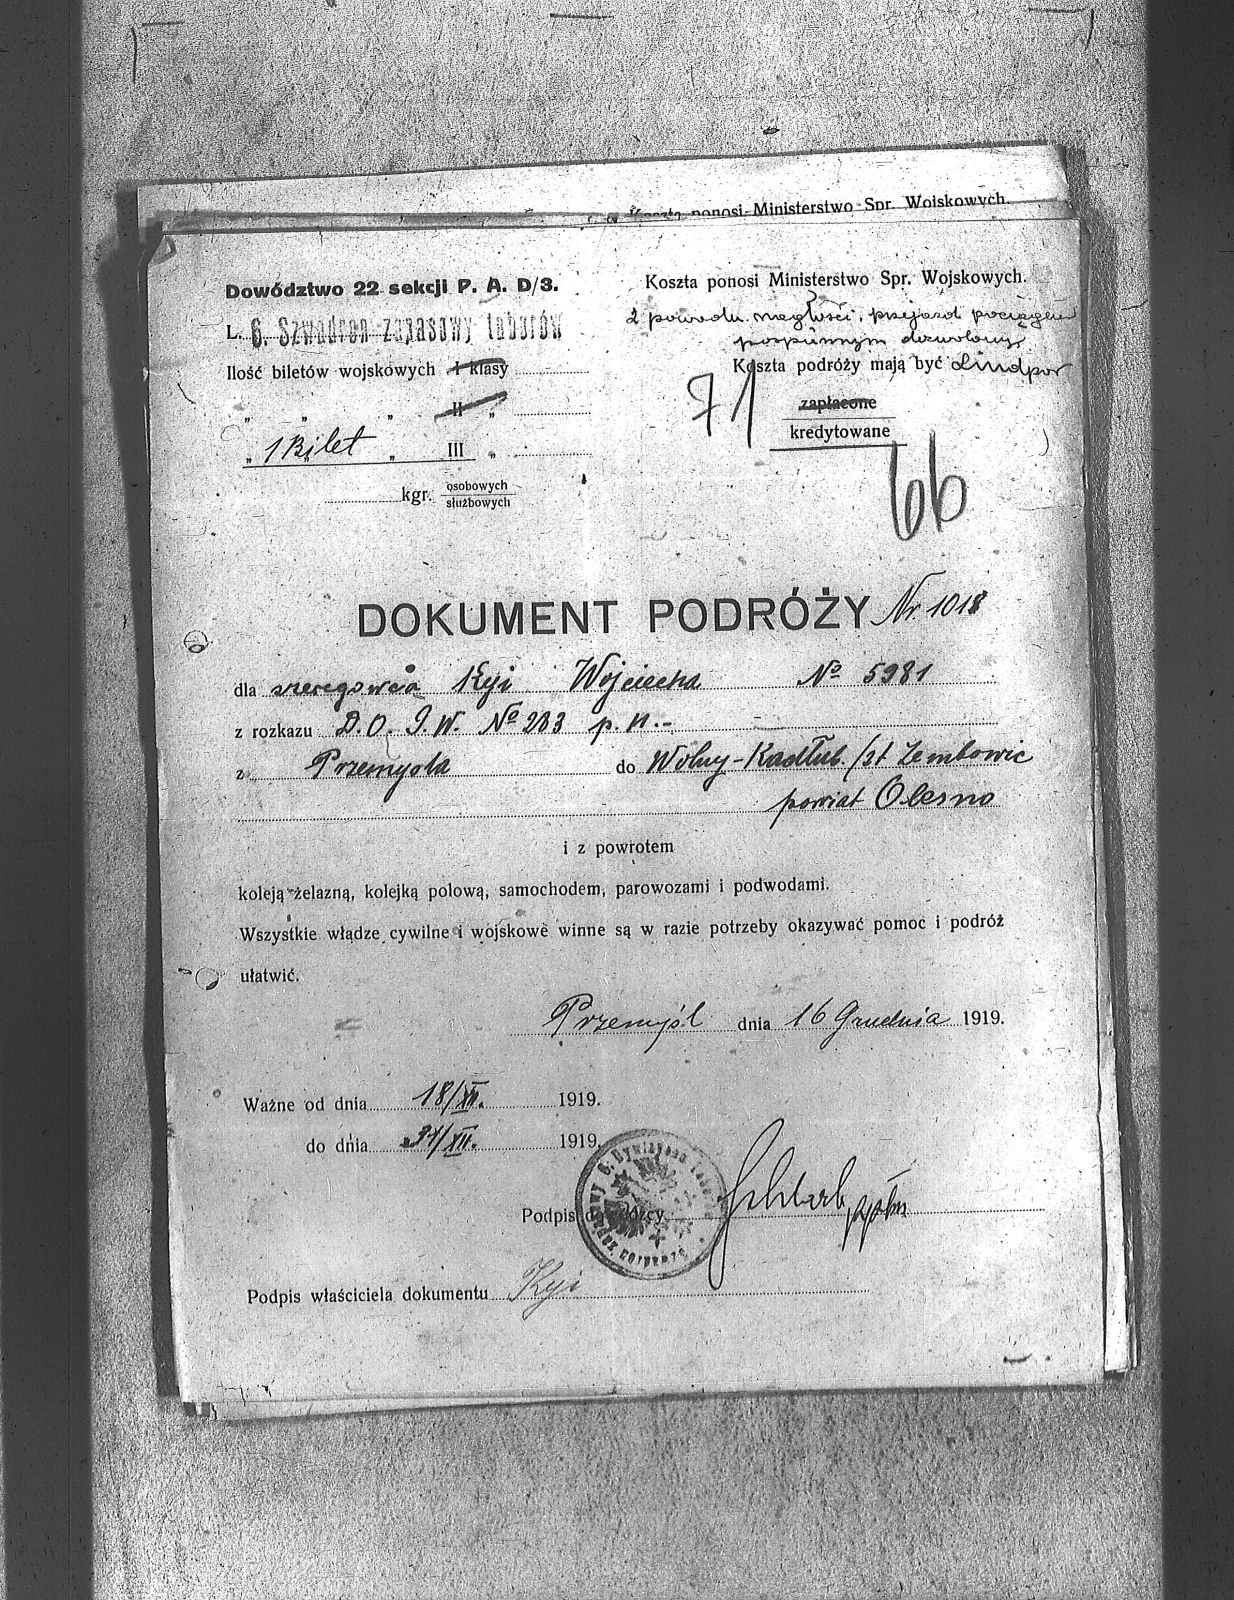 Koszta ponosi Ministerstwo Spr. Wojskowych.
Dowództwo 22 sekcji P. A. D/3.
Koszta ponosi Ministerstwo Spr. Wojskowych.
L. 6. Szwadron zapasowy taborów
z powodu nagłości, przejazd pociągiem
pospiesznym dozwolony
Ilość biletów wojskowych I klasy
Koszta podróży mają być
„ „ „ II „
71
zapłacone
kredytowane
„ 1 Bilet „ III „
66
kgr. osobowych
służbowych
DOKUMENT PODRÓŻY Nr. 1018
dla szeregowca Kyi Wojciecha No 5981
z rozkazu D.O. No 283 p. n.-
z Przemyśla do Wolny-Kadłub /st Zembowic
powiat Olesno
i z powrotem
koleją żelazną, kolejką polową, samochodem, parowozami i podwodami.
Wszystkie władze cywilne i wojskowe winne są w razie potrzeby okazywać pomoc i podróż
ułatwić.
Przemyśl dnia 16 Grudnia 1919.
Ważne od dnia 18/XII. 1919.
do dnia 31/XII. 1919.
Podpis dowódcy
Podpis właściciela dokumentu Kyi